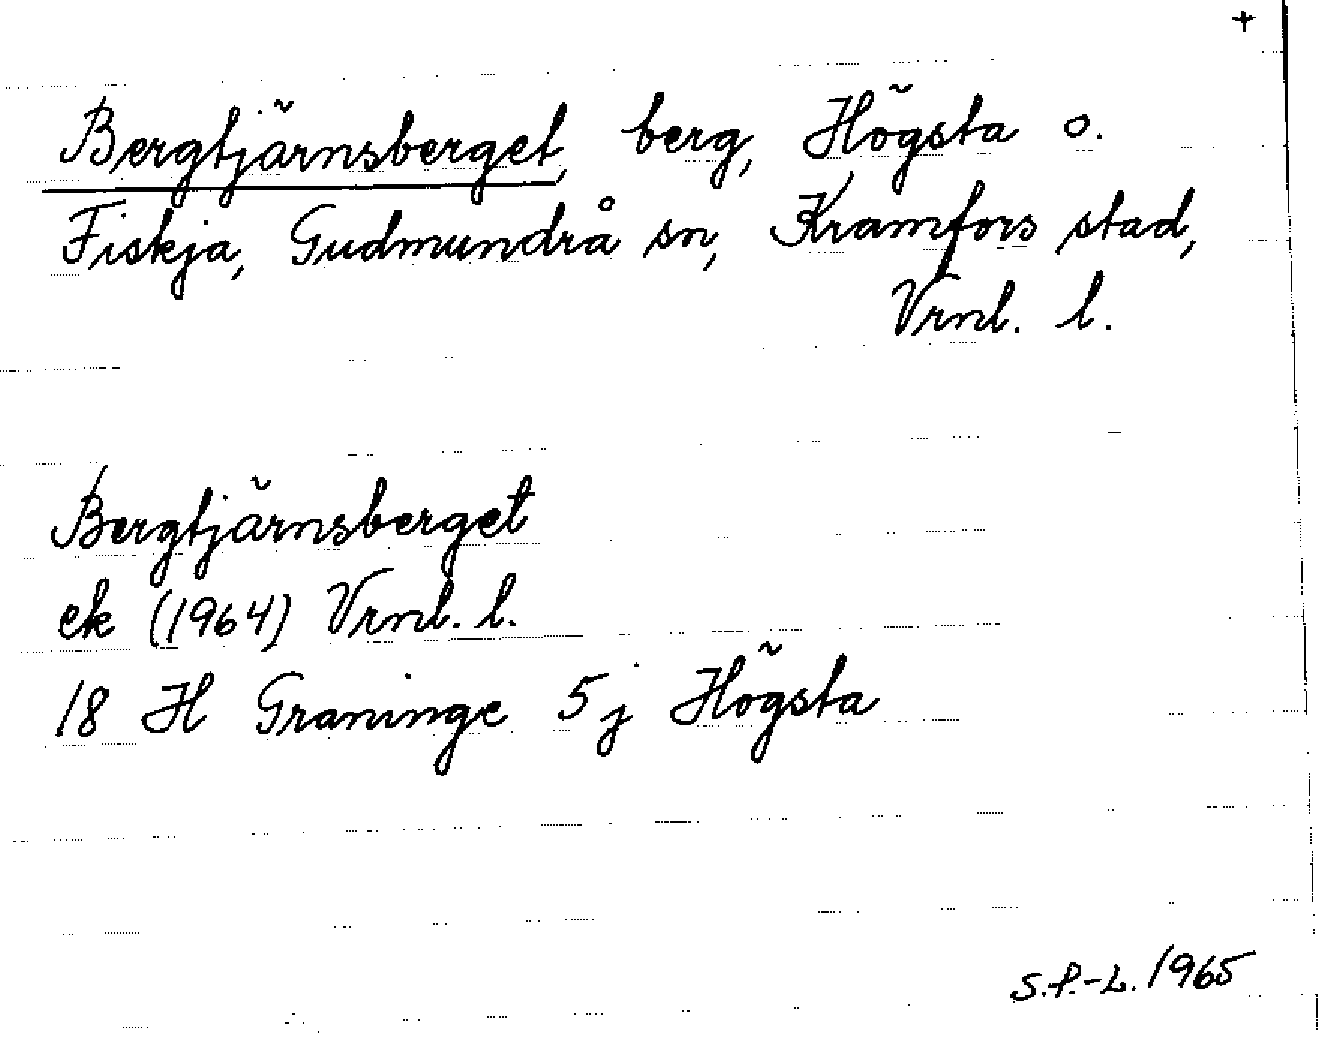 +
Bergtjärnsberget, berg, Högsta o.
Fiskja, Gudmundrå sn, Kramfors stad,
Vrnl. l.
Bergtjärnsberget
ek (1964) Vrnl. l.
18 H Graninge 5 j Högsta
S.P.-L. 1965